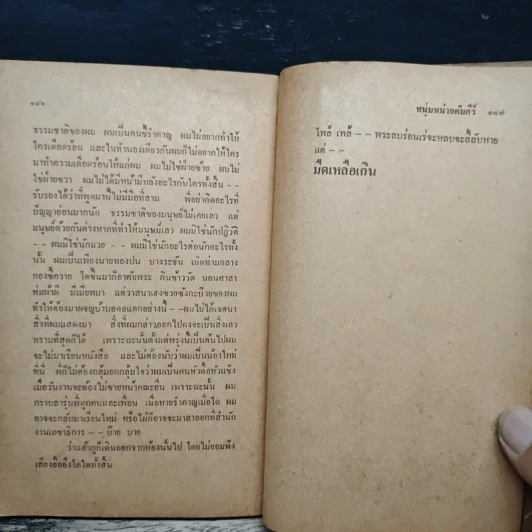 ๑๘๖
ธรรมชาติของผม ผมเป็นคนขี้รำคาญ ผมไม่อยากทำให้
ใครเดือดร้อน และในทำนองเดียวกันผมก็ไม่อยากให้ใคร
มาทำความเดือดร้อนให้แก่ผม ผมไม่ใช่ฝ่ายซ้าย ผมไม่
ใช่ฝ่ายขวา ผมไม่ได้มีหน้ามีหลังอะไรกับใครทั้งนั้น - -
รับรองได้ว่าที่พูดมานี้ไม่มีมือที่สาม พี่อย่าคิดอะไรที่
ปัญญาอ่อนมากนัก ธรรมชาติของมนุษย์ไม่เคยเลว แต่
มนุษย์ด้วยกันต่างหากที่ทำให้มนุษย์เลว ผมมิใช่นักปฏิวัติ
- - ผมมิใช่นักมวย - - ผมมิใช่นักอะไรต่อนักอะไรทั้ง
นั้น ผมเป็นเพียงนายทองปน บางระจัน เกิดท่ามกลาง
กองขี้ควาย โตขึ้นมาก็อาศัยพระ กินข้าววัด นอนศาลา
ห่มผ้าผี มีเมียหมา แต่วาสนาเฮงซวยซังกะบ๊วยของผม
ทำให้ต้องมาผจญบ้าบอคอแตกอย่างนี้ - -ผมไม่ได้เจตนา
สิ่งที่ผมแสดงมา สิ่งที่ผมกล่าวออกไปคงจะเป็นสิ่งเลว
ทรามที่สุดก็ได้ เพราะฉะนั้นตั้งแต่พรุ่งนี้เป็นต้นไปผม
จะไม่มาเรียนหนังสือ และไม่ต้องนับว่าผมเป็นน้องใหม่
ที่นี่ พี่ก็ไม่ต้องกลุ้มอกกลุ้มใจว่าผมเป็นคนหัวดื้อหัวแข็ง
เมื่อวันงานจะต้องไม่ขายหน้าคณะอื่น เพราะฉะนั้น ผม
กราบลารุ่นพี่ทุกคนและเพื่อน เมื่อหายรำคาญเมื่อใด ผม
อาจจะกลับมาเรียนใหม่ หรือไม่ก็อาจจะมาลาออกที่สำนัก
งานเลขาธิการ - - บ๊าย บาย
ว่าแล้วกูก็เดินออกจากห้องนั้นไป โดยไม่ยอมฟัง
เสียงอื้ออึงใดใดทั้งสิ้น
หนุ่มหน่ายคัมภีร์ ๑๘๗
โพล้ เพล้ - - พระลบร่อนเร่จะหลบจะลี้ลับหาย
แต่ - -
มืดเหลือเกิน